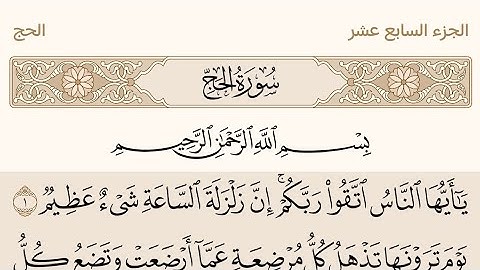 الجزء السابع عشر
الحج
سُورَةُ الحَجِّ
بِسْمِ اللَّهِ الرَّحْمَٰنِ الرَّحِيمِ
يَٰٓأَيُّهَا ٱلنَّاسُ ٱتَّقُوا۟ رَبَّكُمْ ۚ إِنَّ زَلْزَلَةَ ٱلسَّاعَةِ شَىْءٌ عَظِيمٌ ١
يَوْمَ تَرَوْنَهَا تَذْهَلُ كُلُّ مُرْضِعَةٍ عَمَّآ أَرْضَعَتْ وَتَضَعُ كُلُّ